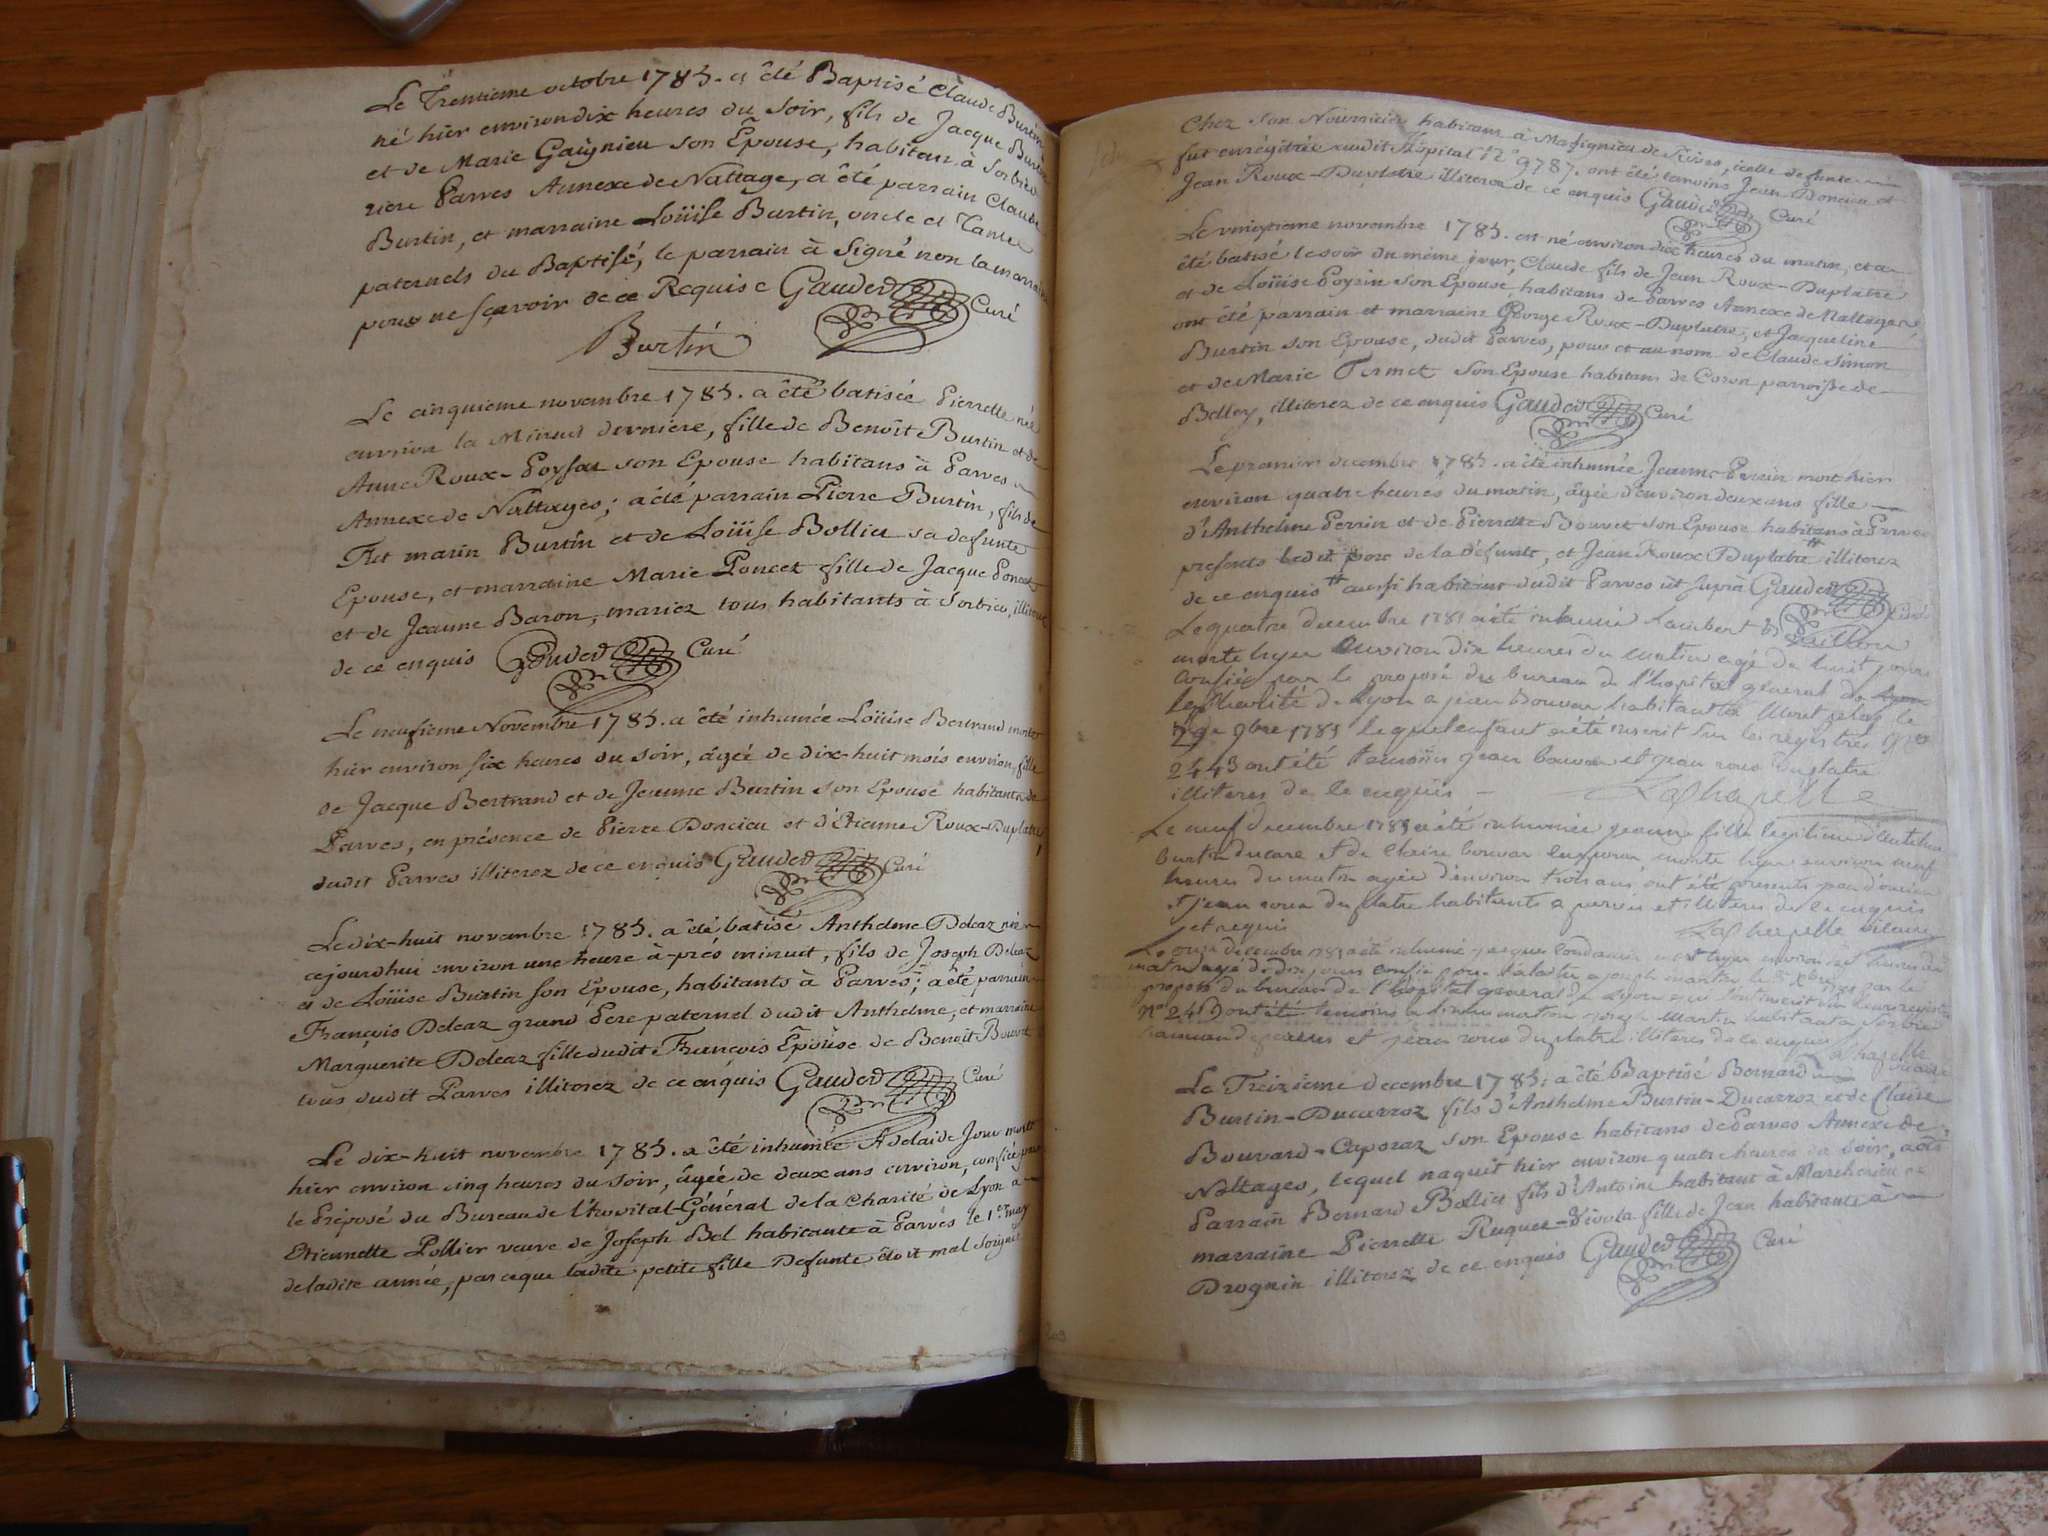 Le Trentieme octobre 1785. a été Baptisé Claude Burtin
né hier environ dix heures du Soir, fils de Jacque Burtin
et de Marie Gaignieu son Epouse, habitans à Sorbieu
riere Parves Annexe de Nattage, a été parrain Claude
Burtin, et marraine Loüise Burtin, oncle et Tante
paternels du Baptisé, le parrain à Signé non la marraine
pour ne sçavoir de ce Requise Gauderd Curé
Burtin
Le cinquieme novembre 1785. a été batisée Pierrette née
environ la Minuit derniere, fille de Benoît Burtin et de
Anne Roux-Poysat son Epouse habitans à Parves
Annexe de Nattages; a été parrain Pierre Burtin, fils de
Feu marin Burtin et de Loüise Bollier sa defunte
Epouse, et marraine Marie Poncet fille de Jacque Poncet
et de Jeanne Baron, mariez tous habitants à Sorbieu,
de ce enquis Gauderd Curé
Le neufieme Novembre 1785. a été inhumée Loüise Bertrand morte
hier environ six heures du soir, âgée de dix-huit mois environ, fille
de Jacque Bertrand et de Jeanne Burtin son Epouse habitants de
Parves, en présence de Pierre Doncieu et d'Etienne Roux-Duplatre,
dudit Parves illiterez de ce enquis Gauderd Curé
Le dix-huit novembre 1785. a été batisé Anthelme Deleaz né
cejourdhui environ une heure à-prés minuit, fils de Joseph Deleaz
et de Loüise Burtin son Epouse, habitants à Parves; a été parrain
François Deleaz grand Pere paternel dudit Anthelme, et marraine
Marguerite Deleaz fille dudit François Epouse de Benoît Bouvet
tous dudit Parves illiterez de ce enquis Gauderd Curé
Le dix-huit novembre 1785. a été inhumée Adelaide Jour morte
hier environ cinq heures du soir, âgée de deux ans environ, confiée par
le Préposé du Bureau de l'hôpital-Général de la Charité de Lyon à
Etiennette Pollier veuve de Joseph Bel habitante à Parves le 1er may
de ladite année, parceque ladite petite fille Defunte étoit mal Soignée
Chez son Nourricier habitant à Massignieu de Rives, icelle defunte
fut enrégitrée audit Hôpital n° 9787. ont été temoins Jean Doncieu et
Jean Roux-Duplatre illiterez de ce enquis Gauderd Curé
Le vingtieme novembre 1785. est né environ dix heures du matin, et a
été batisé le soir du même jour, Claude fils de Jean Roux-Duplatre
et de Loüise Poysin son Epouse habitans de Parves Annexe de Nattages
ont été parrain et marraine George Roux-Duplatre, et Jacqueline
Burtin son Epouse, dudit Parves, pour et au nom de Claude Simon
et de Marie Termet son Epouse habitans de Coron parroisse de
Belley, illiterez de ce enquis Gauderd Curé
Le premier decembre 1785. a été inhumée Jeanne Perrin mort hier
environ quatre heures du matin, âgée d'environ deux ans fille
d'Anthelme Perrin et de Pierrette Bouvet son Epouse habitans à Parves
presents ledit pere de la défunte, et Jean Roux Duplatre # illiterez
de ce enquis # aussi habitant dudit Parves ut supra Gauderd Curé
Le quatre decembre 1785 a été inhumé Lambert
morte hyer environ dix heures du matin agé de huit jours
confiée par le preposé du bureau de l'hopital general de
la charité de Lyon a jean bouvar habitant a le
29e 9bre 1785 lequel enfant a été inscrit sur les registres
2443 ont été temoins jean bouvar et jean roux duplatre
illiteres de ce enquis Lachapelle
Le neuf decembre 1785 a été inhumée jeanne fille legitime d'Anthelme
burtin ducare et de Claire bouvar morte hyer environ neuf
heures du matin agée d'environ trois ans, ont été presents jean doncieu
et jean roux duplatre habitants a parves et illiteres de ce enquis
et requis Lachapelle vicaire
Le onze decembre 1785 a été inhumé jacques mort hyer environ sept heures du
matin agé de dix jours confié a joseph martin le 5 Xbre par le
preposé du bureau de l'hopital general de Lyon
N° 2419 ont été temoins a l'inhumation joseph martin habitant a Sorbieu
et jean roux duplatre illiteres de ce enquis
Lachapelle vicaire
Le Treizieme decembre 1785. a été Baptisé Bernard
Burtin-Ducarroz fils d'Anthelme Burtin-Ducarroz et de Claire
Bouvard-Caporaz son Epouse habitans de Parves Annexe de
Nattages, lequel naquit hier environ quatre heures du soir, a été
Parrain Bernard Bollier fils d'Antoine habitant à
marraine Pierrette Ruquet-Vivola fille de Jean habitante à
Drognin illiterez de ce enquis Gauderd Curé